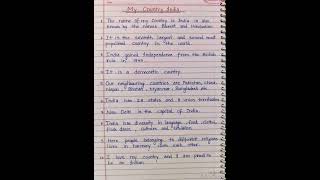 My Country India
1. The name of my country is India is also
known by the names Bharat and Hindustan.
2. It is the seventh largest and second most
populated country in the world.
3. India gained Independence from the British
rule in 1947.
4. It is a democratic country.
5. Our neighbouring countries are Pakistan, China,
Nepal, Bhutan, Myanmar, Bangladesh etc.
6. India has 28 states and 8 union territories.
7. New Delhi is the capital of India.
8. India has diversity in language, food, clothes,
folk dance, cultures and
9. Here people belonging to different religions
lives in harmony with each other.
10. I love my country and I am proud to
be an Indian.